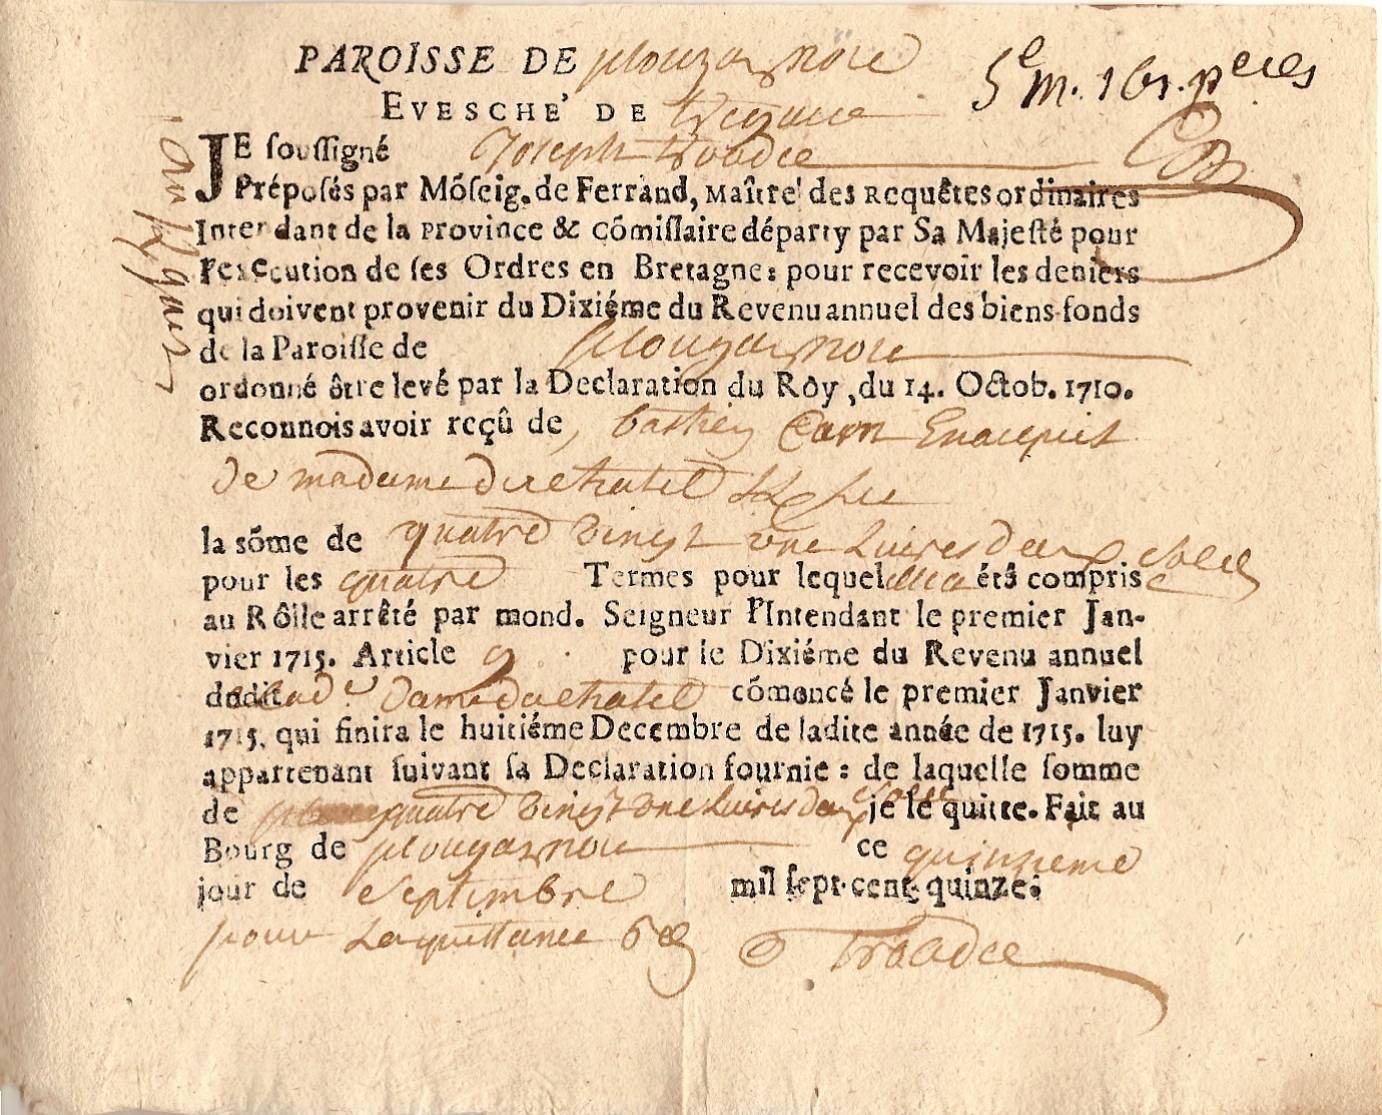 PAROISSE DE plougasnou
EVESCHE' DE treguier
JE soussigné Joseph troadec
Préposés par Mōseig. de Ferrand, Maître des Requêtes ordinaires
Intendant de la Province & cōmissaire départy par Sa Majesté pour
l'execution de ses Ordres en Bretagne: pour recevoir les deniers
qui doivent provenir du Dixiéme du Revenu annuel des biens fonds
de la Paroisse de plougasnou
ordonné être levé par la Declaration du Roy, du 14. Octob. 1710.
Reconnois avoir reçû de bastien
de madame duchatel
la sōme de quatre vingt une Livres deux
pour les quatre Termes pour lequel été compris
au Rôlle arrêté par mond. Seigneur l'Intendant le premier Jan-
vier 1715. Article 9 pour le Dixiéme du Revenu annuel
dudit dame duchatel cōmencé le premier Janvier
1715. qui finira le huitiéme Decembre de ladite année de 1715. luy
appartenant suivant sa Declaration fournie: de laquelle somme
de quatre vingt une Livres deux je le quitte. Fait au
Bourg de plougasnou ce quinzieme
jour de septembre mil sept cent quinze.
pour La quittance troadec